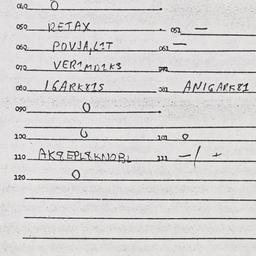 040 0
050 RETAX 051 —
060 POVJA,LIT 061 —
070 VER1MO1K3
080 IGARK81S 081 ANIGARK81
090 0
100 0 101 0
110 111 —/ +
120 0